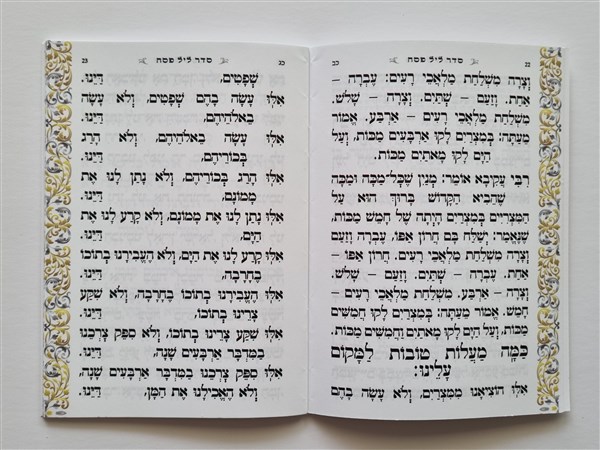 22 סדר ליל פסח כב
וְצָרָה מִשְׁלַחַת מַלְאֲכֵי רָעִים: עֶבְרָה –
אַחַת. וָזַעַם – שְׁתַּיִם. וְצָרָה – שָׁלֹשׁ.
מִשְׁלַחַת מַלְאֲכֵי רָעִים – אַרְבַּע. אֱמוֹר
מֵעַתָּה: בְּמִצְרַיִם לָקוּ אַרְבָּעִים מַכּוֹת, וְעַל
הַיָּם לָקוּ מָאתַיִם מַכּוֹת.
רַבִּי עֲקִיבָא אוֹמֵר: מִנַּיִן שֶׁכָּל־מַכָּה וּמַכָּה
שֶׁהֵבִיא הַקָּדוֹשׁ בָּרוּךְ הוּא עַל
הַמִּצְרִיִּים בְּמִצְרַיִם הָיְתָה שֶׁל חָמֵשׁ מַכּוֹת,
שֶׁנֶּאֱמַר: יְשַׁלַּח בָּם חֲרוֹן אַפּוֹ, עֶבְרָה וָזַעַם
וְצָרָה מִשְׁלַחַת מַלְאֲכֵי רָעִים. חֲרוֹן אַפּוֹ. –
אַחַת. עֶבְרָה – שְׁתַּיִם. וָזַעַם – שָׁלֹשׁ.
וְצָרָה – אַרְבַּע. מִשְׁלַחַת מַלְאֲכֵי רָעִים –
חָמֵשׁ. אֱמוֹר מֵעַתָּה: בְּמִצְרַיִם לָקוּ חֲמִשִּׁים
מַכּוֹת, וְעַל הַיָּם לָקוּ מָאתַיִם וַחֲמִשִּׁים מַכּוֹת.
כַּמָּה מַעֲלוֹת טוֹבוֹת לַמָּקוֹם
עָלֵינוּ:
אִלּוּ הוֹצִיאָנוּ מִמִּצְרַיִם, וְלֹא עָשָׂה בָהֶם
כג סדר ליל פסח 23
שְׁפָטִים, דַּיֵּנוּ.
אִלּוּ עָשָׂה בָהֶם שְׁפָטִים, וְלֹא עָשָׂה
בֵאלֹהֵיהֶם, דַּיֵּנוּ.
אִלּוּ עָשָׂה בֵאלֹהֵיהֶם, וְלֹא הָרַג
בְּכוֹרֵיהֶם, דַּיֵּנוּ.
אִלּוּ הָרַג בְּכוֹרֵיהֶם, וְלֹא נָתַן לָנוּ אֶת
מָמוֹנָם, דַּיֵּנוּ.
אִלּוּ נָתַן לָנוּ אֶת מָמוֹנָם, וְלֹא קָרַע לָנוּ אֶת
הַיָּם, דַּיֵּנוּ.
אִלּוּ קָרַע לָנוּ אֶת הַיָּם, וְלֹא הֶעֱבִירָנוּ בְתוֹכוֹ
בֶחָרָבָה, דַּיֵּנוּ.
אִלּוּ הֶעֱבִירָנוּ בְתוֹכוֹ בֶחָרָבָה, וְלֹא שִׁקַּע
צָרֵינוּ בְתוֹכוֹ, דַּיֵּנוּ.
אִלּוּ שִׁקַּע צָרֵינוּ בְתוֹכוֹ, וְלֹא סִפֵּק צָרְכֵּנוּ
בַּמִּדְבָּר אַרְבָּעִים שָׁנָה, דַּיֵּנוּ.
אִלּוּ סִפֵּק צָרְכֵּנוּ בַּמִּדְבָּר אַרְבָּעִים שָׁנָה,
וְלֹא הֶאֱכִילָנוּ אֶת הַמָּן, דַּיֵּנוּ.